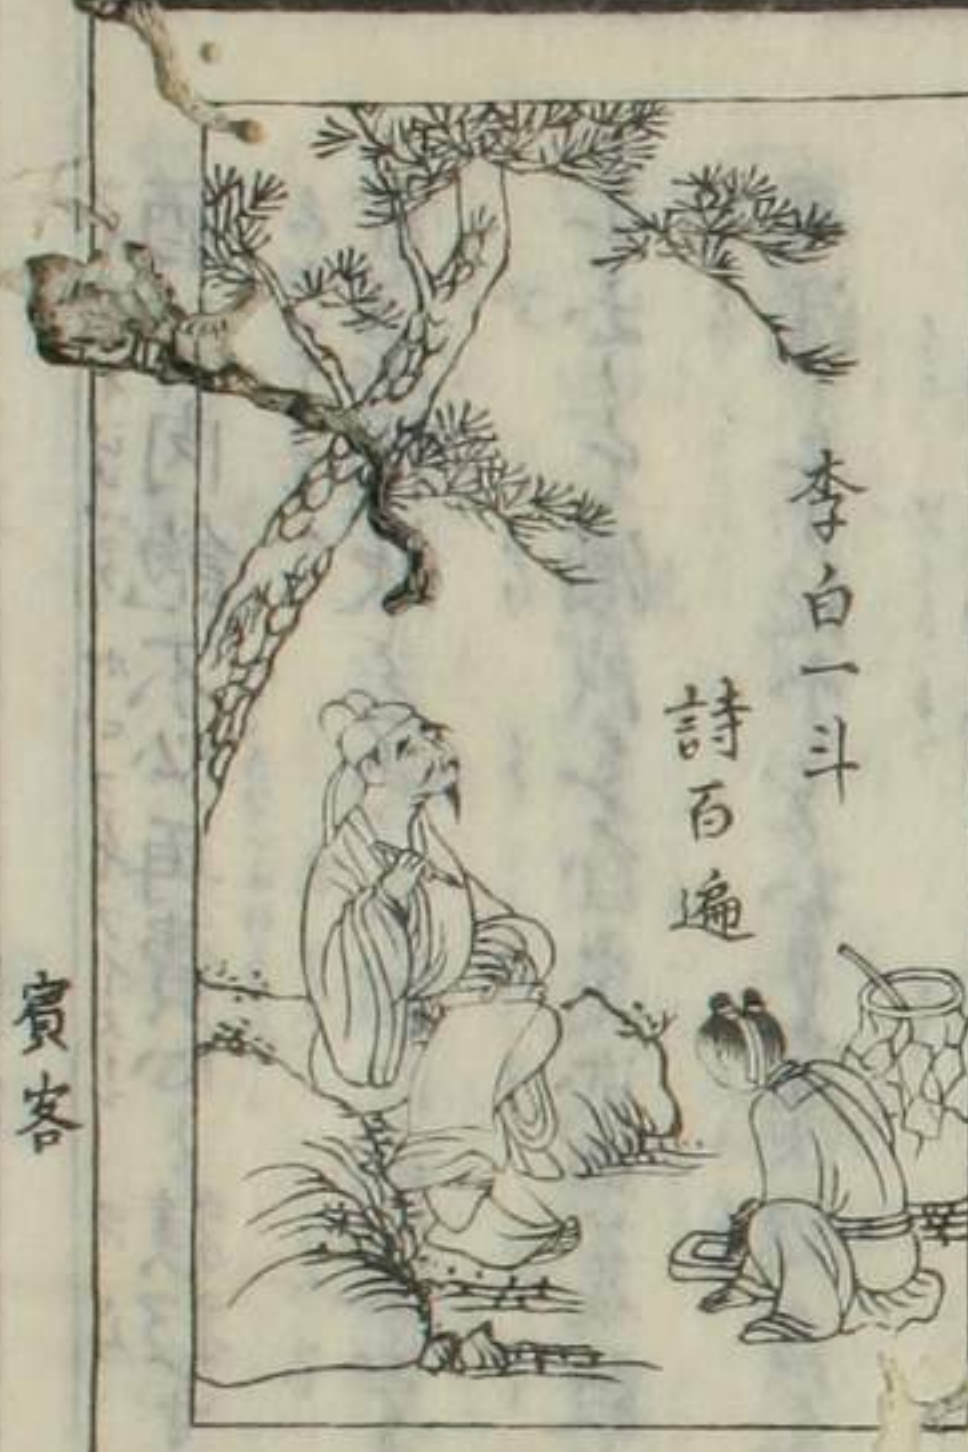 李白一斗
詩百遍
賓客